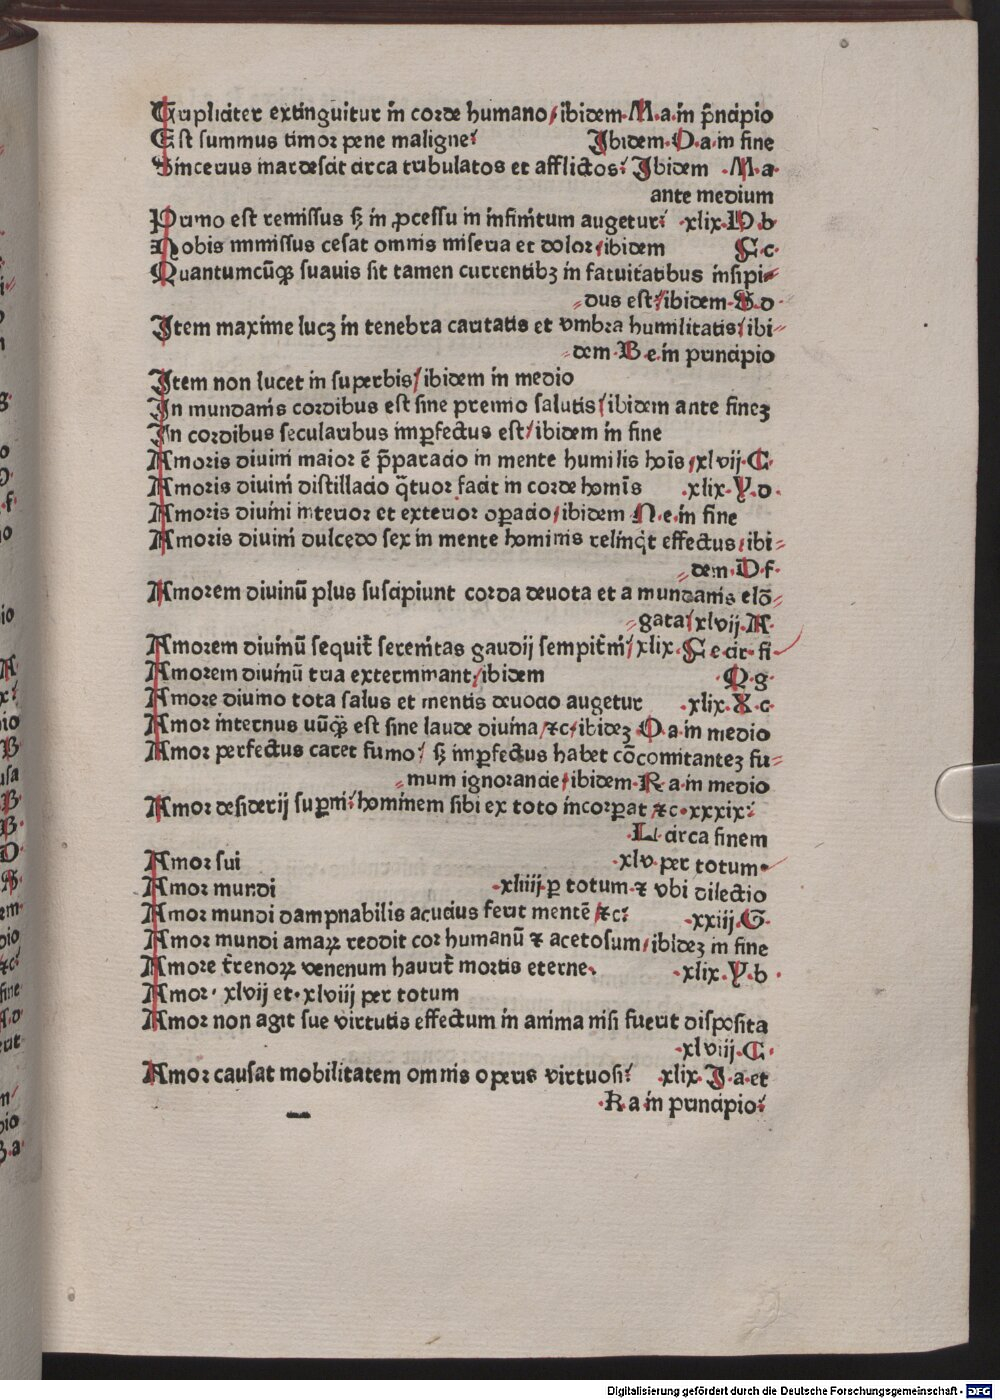 Tripliciter extinguitur in corde humano / ibidem · M · a · in p̄ncipio
Est summus timor pene maligne⁝ Ibidem · O · a · in fine
Sincerius mardescit circa tribulatos et afflictos⁝ Ibidem · M · a ·
ante medium
Primo est remissus sꝫ in ꝓcessu in infinitum augetur⁝ · xlix · D · b
Nobis immissus cesat omnis miseria et dolor / ibidem F · c ·
Quantumcūqꝫ suauis sit tamen currentibꝫ in fatuitatibus insipi⸗
⸗dus est / ibidem · S · d ·
Item maxime lucꝫ in tenebra caritatis et vmbra humilitatis / ibi⸗
⸗dem · B · e · in principio
Item non lucet in superbis / ibidem in medio
In mundanis cordibus est sine premio salutis / ibidem ante fineꝫ
In cordibus secularibus imꝑfectus est / ibidem in fine
Amoris diuini maior ē p̄paracio in mente humilis hoīs / xlvij · C ·
Amoris diuini distillacio q̄tuor facit in corde hominis · xlix · Y · d ·
Amoris diuini interior et exterior oꝑacio / ibidem N · e · in fine
Amoris diuini dulcedo sex in mente hominis relinq̇t effectus / ibi⸗
⸗dem · D · f ·
Amorem diuinū plus suscipiunt corda deuota et a mundanis elō⸗
⸗gata / xlvij · A ·
Amorem diuinū sequit᷑ serenitas gaudij sempit᷑ni / xlix · F · e · cir · fi⸗
Amorem diuinū tria exterminant / ibidem · Q · g ·
Amore diuino tota salus et mentis deuocio augetur · xlix · X · c ·
Amor internus uūqꝫ est sine laude diuina / ⁊c / ibideꝫ · O · a · in medio
Amor perfectus caret fumo⁝ sꝫ imꝑfectus habet cōcomitanteꝫ fu⸗
⸗mum ignorancie / ibidem · R · a · in medio
Amor desiderij suꝑni⁝ hominem sibi ex toto incorꝑat ⁊c · xxxix⁝
· L · circa finem
Amor sui · xlv · per totum ·
Amor mundi · xliiij · ꝑ totum · ⁊ vbi dilectio
Amor mundi dampnabilis acucius ferit mentē ⁊c⁝ · xxiij · G ·
Amor mundi amaꝝ reddit cor humanū ⁊ acetosum / ibideꝫ in fine
Amore t᷑renoꝝ venenum haurit᷑ mortis eterne · · xlix · Y · b ·
Amor · xlvij et · xlviij per totum
Amor non agit sue virtutis effectum in anima nisi fuerit disposita
· xlviij · C ·
Amor causat mobilitatem omnis operis virtuosi⁝ xlix · I · a · et
· R · a · in principio⁝
Digitalisierung gefördert durch die Deutsche Forschungsgemeinschaft - DFG